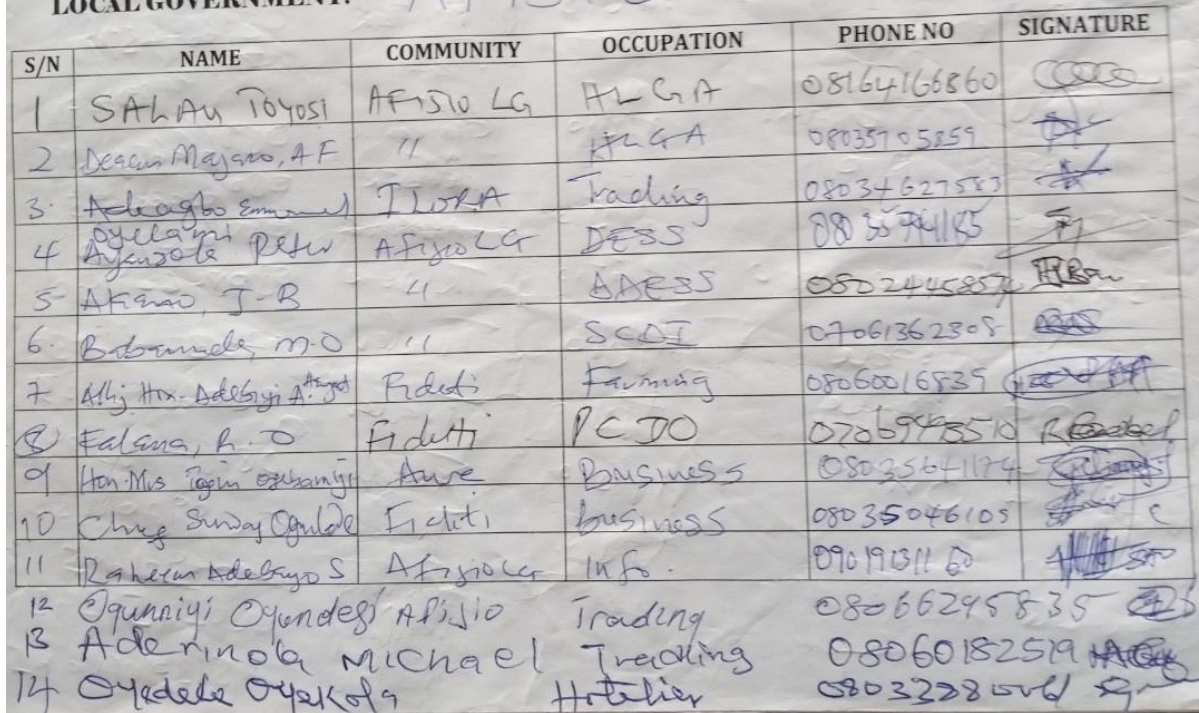 LOCAL GOVERNMENT:
S/N NAME COMMUNITY OCCUPATION PHONE NO SIGNATURE
1 SALAU TOYOSI AFISIO LG HLGA 08164166860
2 Deacon Majaro, A F " HLGA 08035705859
3. Adeagbo Emmanuel ILORA Trading 08034627583
4 Oyelami Peter AFisio LG DESS
5 Akinro, J-B " ADESS
6. M.O " SCDI 07061362808
7 Alhj Hon. Adebiyi A. Fiditi Farming 08060016839
8 Falana, R. O Fiditi PCDO 07069485510
9 Hon. Mrs Awe Business 08035641174
10 Chief Sunday Ogunlade Fiditi business 08035046105
11 Raheem Adebayo S AFisio LG Info. 09019131160
12 Ogunniyi Oyundesi Afisio Trading 08066295835
13 Aderinola Michael Treading 08060182519
14 Oyedele Oyekola Hotelier